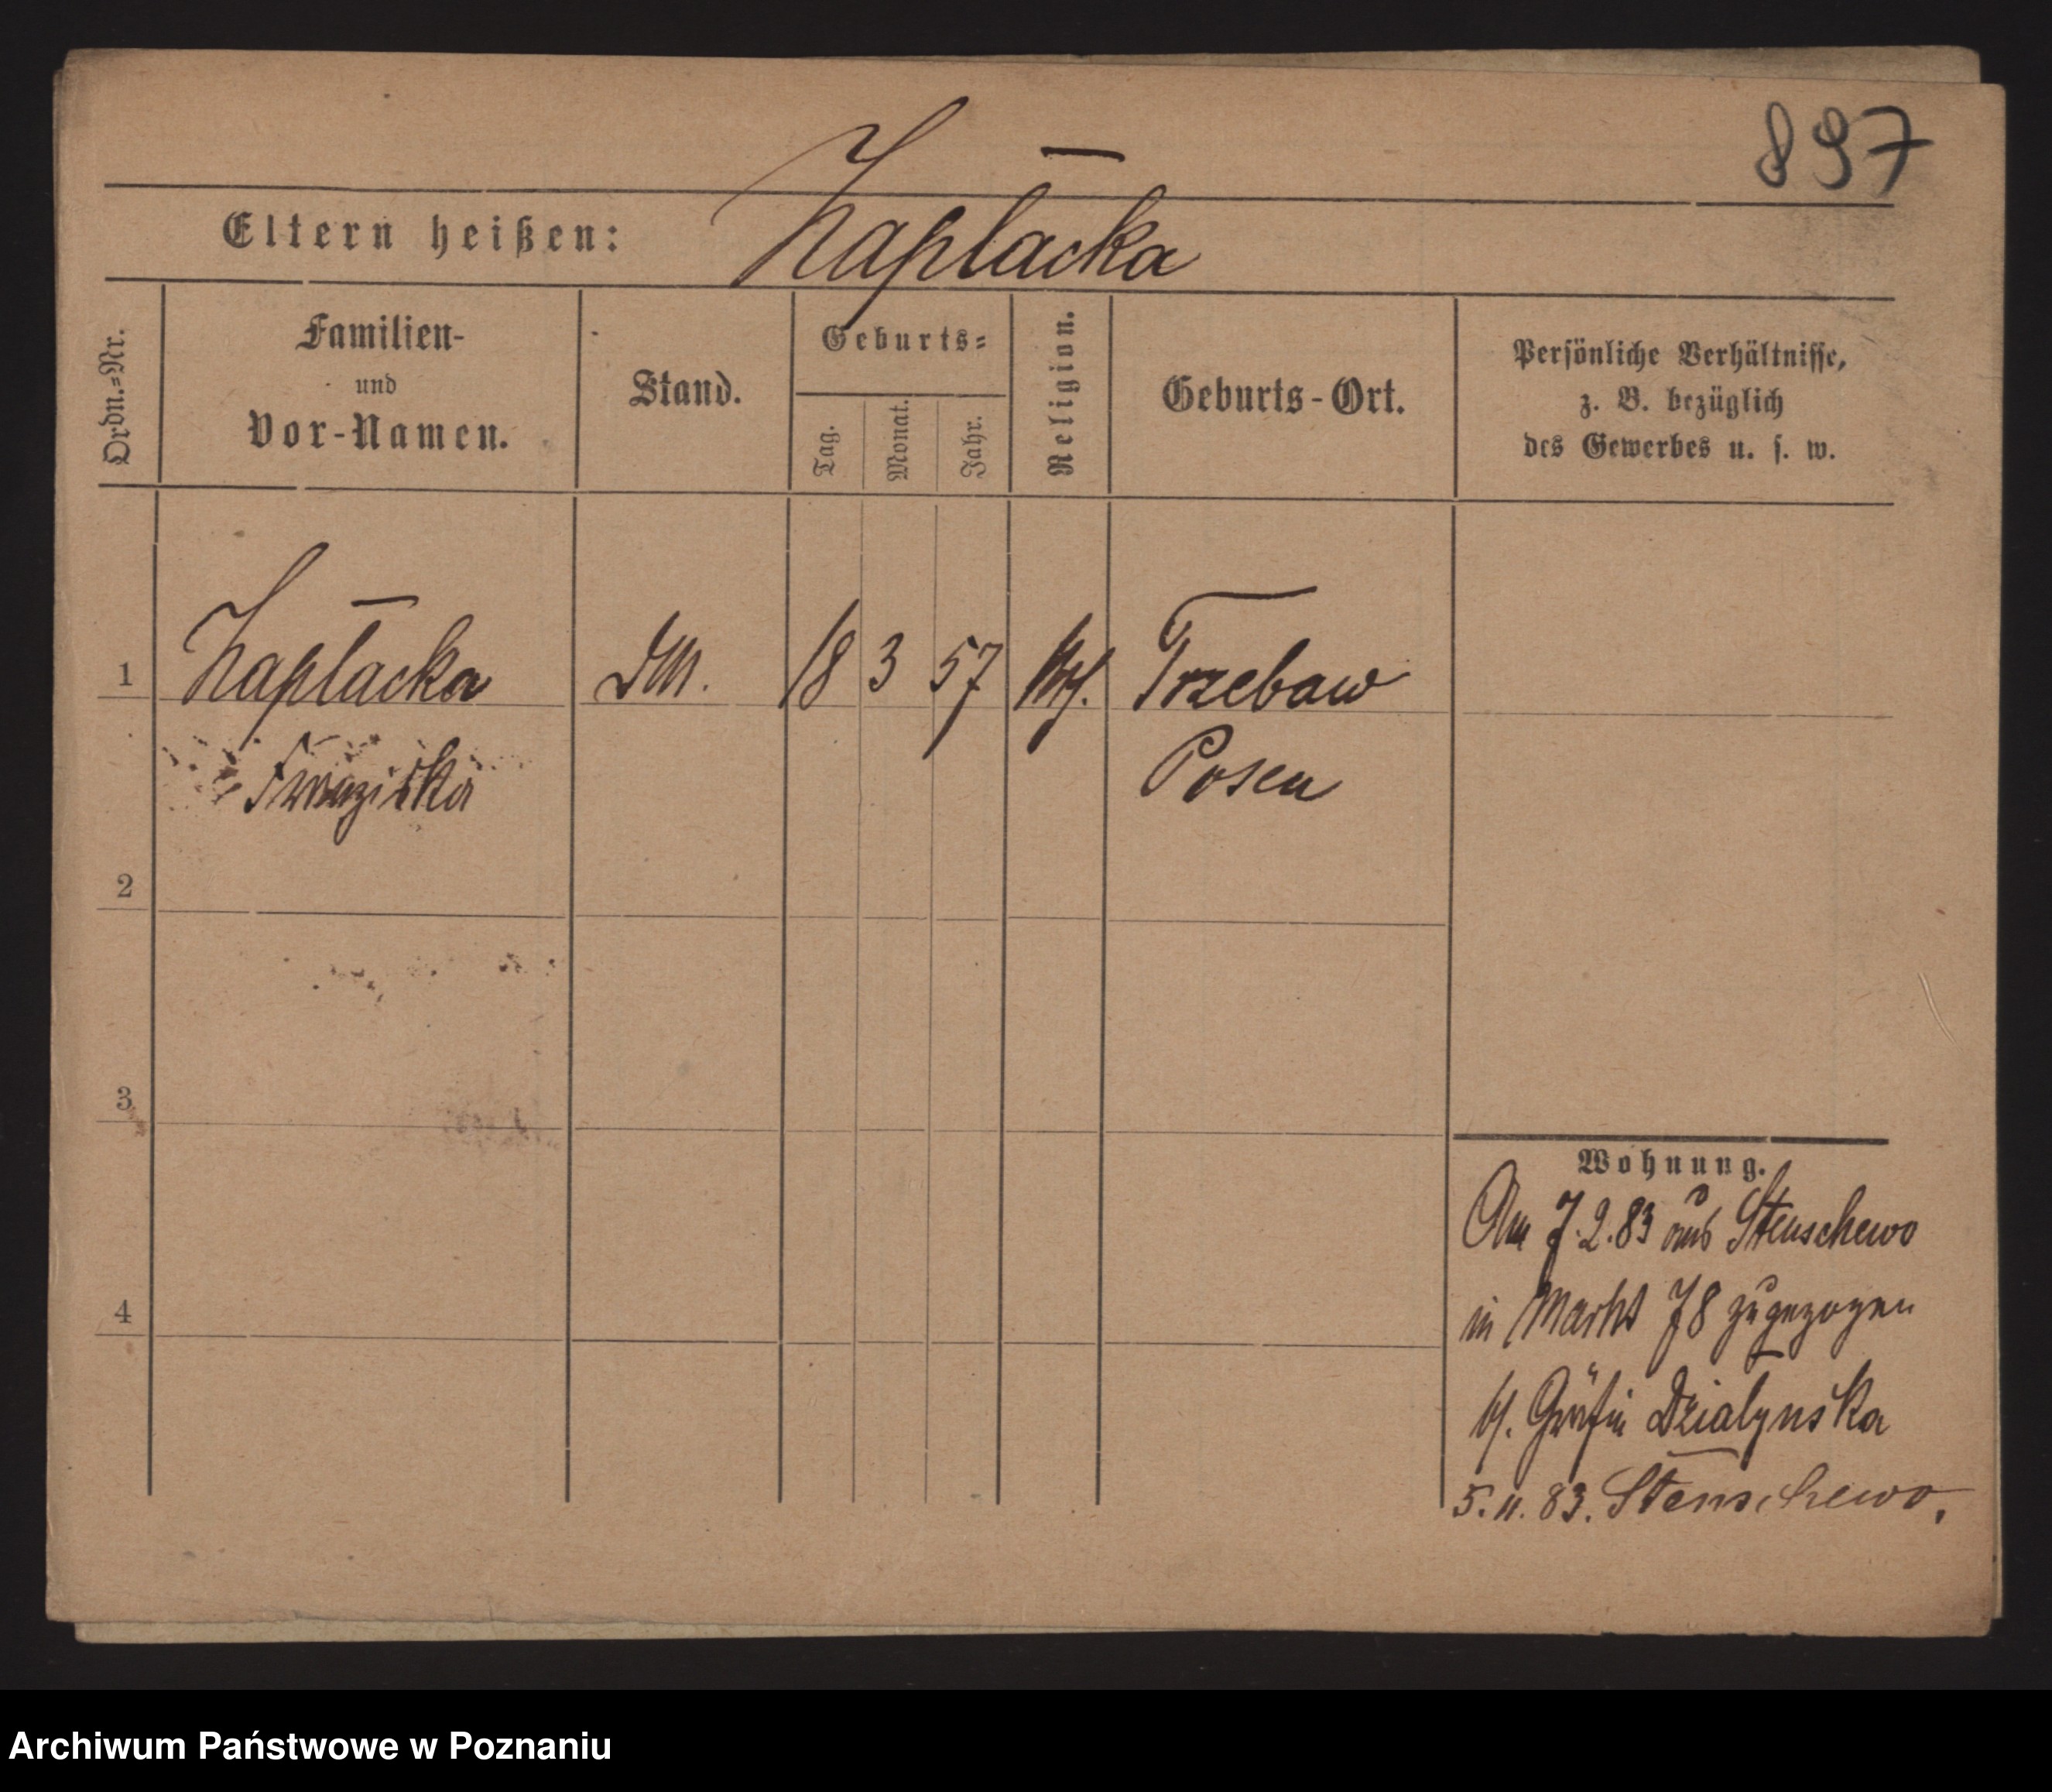 897
Eltern heißen: Zaptacka
Ordn.=Nr.
Familien-
und
Vor-Namen.
Stand.
Geburts=
Tag.
Monat.
Jahr.
Religion.
Geburts-Ort.
Persönliche Verhältnisse,
z. B. bezüglich
des Gewerbes u. s. w.
1 Zaptacka DM. 18 3 57 Trzebaw
Franziska Posen
2
3
4
Wohnung.
Am 7.2.83 aus Stenschewo
in Markt 78 zugezogen
Gräfin Dzialynska
5. 11. 83. Stenschewo.
Archiwum Państwowe w Poznaniu